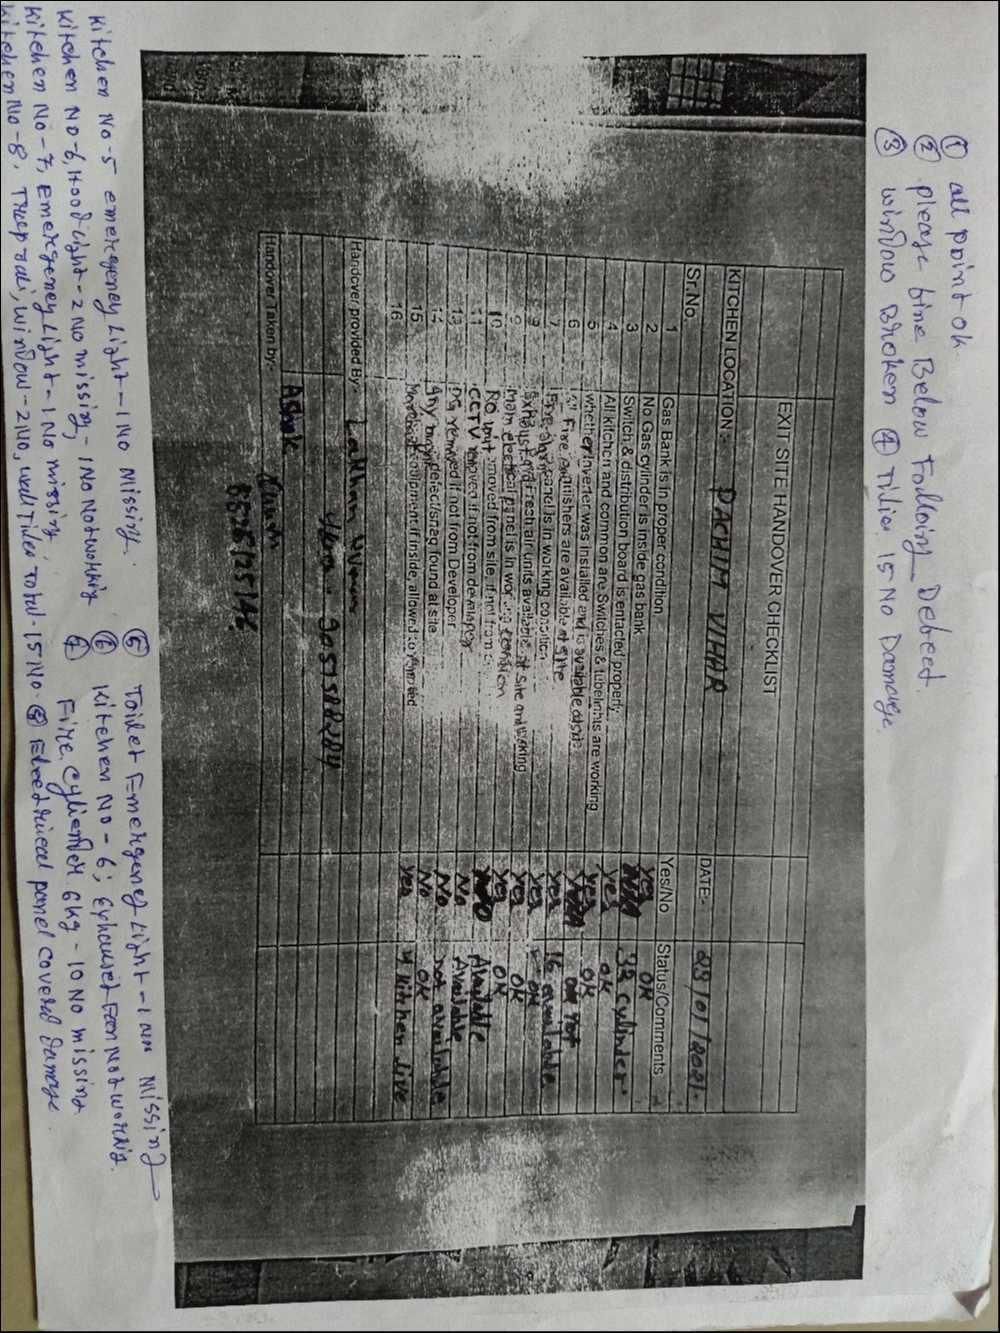 ① all point ok.
② please fine Below Folloing Debeed
③ window Broken ④ Tilies 15 No Damage.
EXIT SITE HANDOVER CHECKLIST
KITCHEN LOCATION:- PACHIM VIHAR DATE:- 23/01/2021.
Sr.No. Yes/No Status/Comments
1 Gas Bank is in proper condition yes OK
2 No Gas cylinder is inside gas bank 32 cylinder.
3 Switch & distribution board is entacted properly yes OK
4 All kitchen and common are Switches & tubelights are working yes OK
5 whether inverter was installed and is available onsite not
6 All Fire extinguishers are available at site yes 16 available
7 Fire alarm panel is in working condition yes OK
8 Exhaust and fresh air units available at site and working yes OK
9 main electrical panel is in working condition yes OK
10 RO unit removed from site, if not from Available
11 CCTV removed if not from developer No Available
13 DG removed if not from Developer No not available
14 Any major defect/snag found at site No OK
15 equipment if inside, allowed to yes 4 kitchen live
16
Handover provided By:- Lakhan
Handover Taken by:- Ashok
8528125146
kitchen No-5 emergency Light-1 No missing.
Kitchen No-6, Hood Light-2 No missing,-1 No Not working
Kitchen No-7, Emergency Light-1 No missing,
Kitchen No-8, window-2 No, wall Tiles Total-15 No.
⑤ Toilet Emergency Light-1 missing
⑥ Kitchen No-6, Exhauset Fan Not working.
⑦ Fire Cyliender 6 kg-10 No missing
⑧ Electrical panel covered Damage